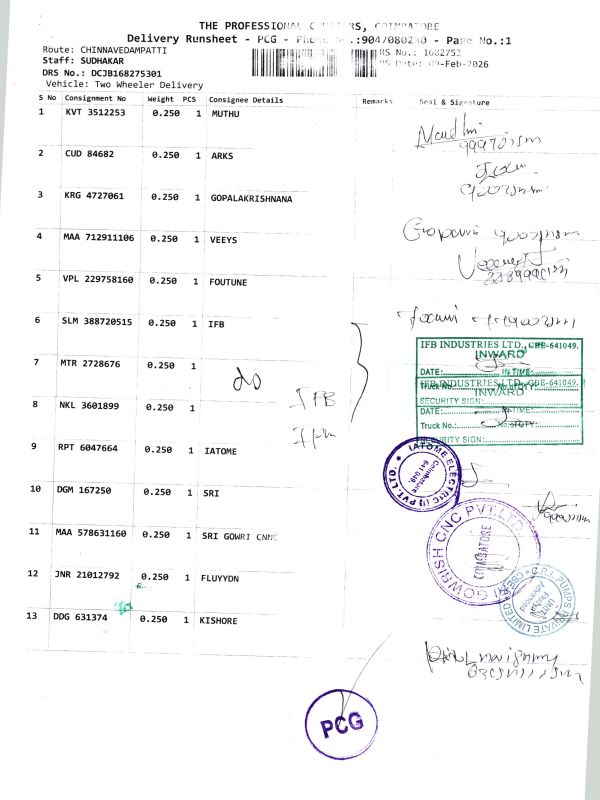 THE PROFESSIONAL COURIERS, COIMBATORE
Delivery Runsheet - PCG - Phone No.:9047080230 - Page No.:1
Route: CHINNAVEDAMPATTI
RS No.: 1682753
Staff: SUDHAKAR
RS Date: 09-Feb-2026
DRS No.: DCJB168275301
Vehicle: Two Wheeler Delivery
S No Consignment No Weight PCS Consignee Details Remarks Seal & Signature
1 KVT 3512253 0.250 1 MUTHU
2 CUD 84682 0.250 1 ARKS
3 KRG 4727061 0.250 1 GOPALAKRISHNANA
4 MAA 712911106 0.250 1 VEEYS
5 VPL 229758160 0.250 1 FOUTUNE
6 SLM 388720515 0.250 1 IFB
7 MTR 2728676 0.250 1
do
8 NKL 3601899 0.250 1
IFB
IFB INDUSTRIES LTD., CBE-641049.
INWARD
DATE: IN TIME:
Truck No.: No.of QTY:
SECURITY SIGN:
IFB INDUSTRIES LTD., CBE-641049.
INWARD
DATE: IN TIME:
Truck No.: No.of QTY:
SECURITY SIGN:
9 RPT 6047664 0.250 1 IATOME
IATOME ELECTRIC (I) PVT. LTD.
Coimbatore
641 049.
10 DGM 167250 0.250 1 SRI
11 MAA 578631160 0.250 1 SRI GOWRI CNNC
GOWRISH CNC PVT.LTD
COIMBATORE
12 JNR 21012792 0.250 1 FLUYYDN
13 DDG 631374 0.250 1 KISHORE
PCG